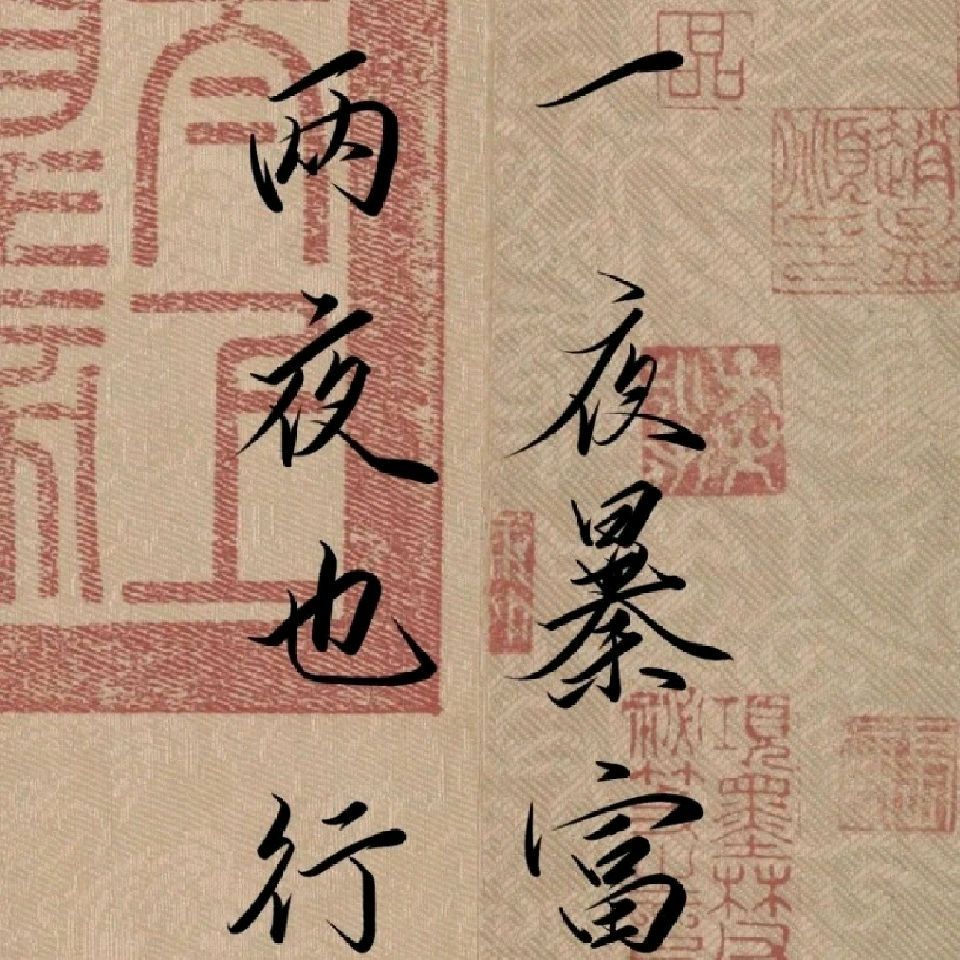 一夜暴富
兩夜也行